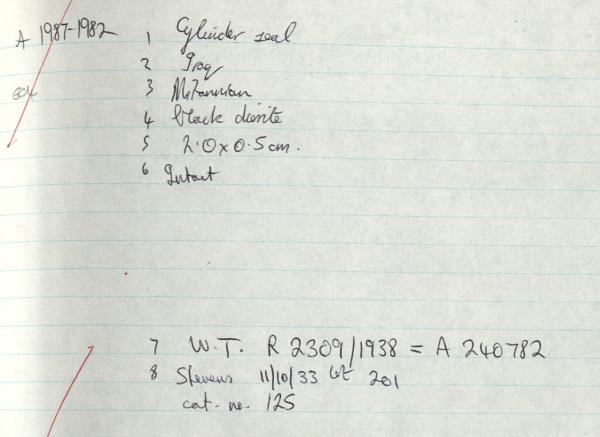 A 1987-1982 1 Cylinder seal
2 Iraq
3 Mitannian
4 black diorite
5 2.0 x 0.5 cm.
6 Intact
7 W.T. R 2309/1938 = A 240782
8 Stevens 11/10/33 lot 201
cat. no. 125